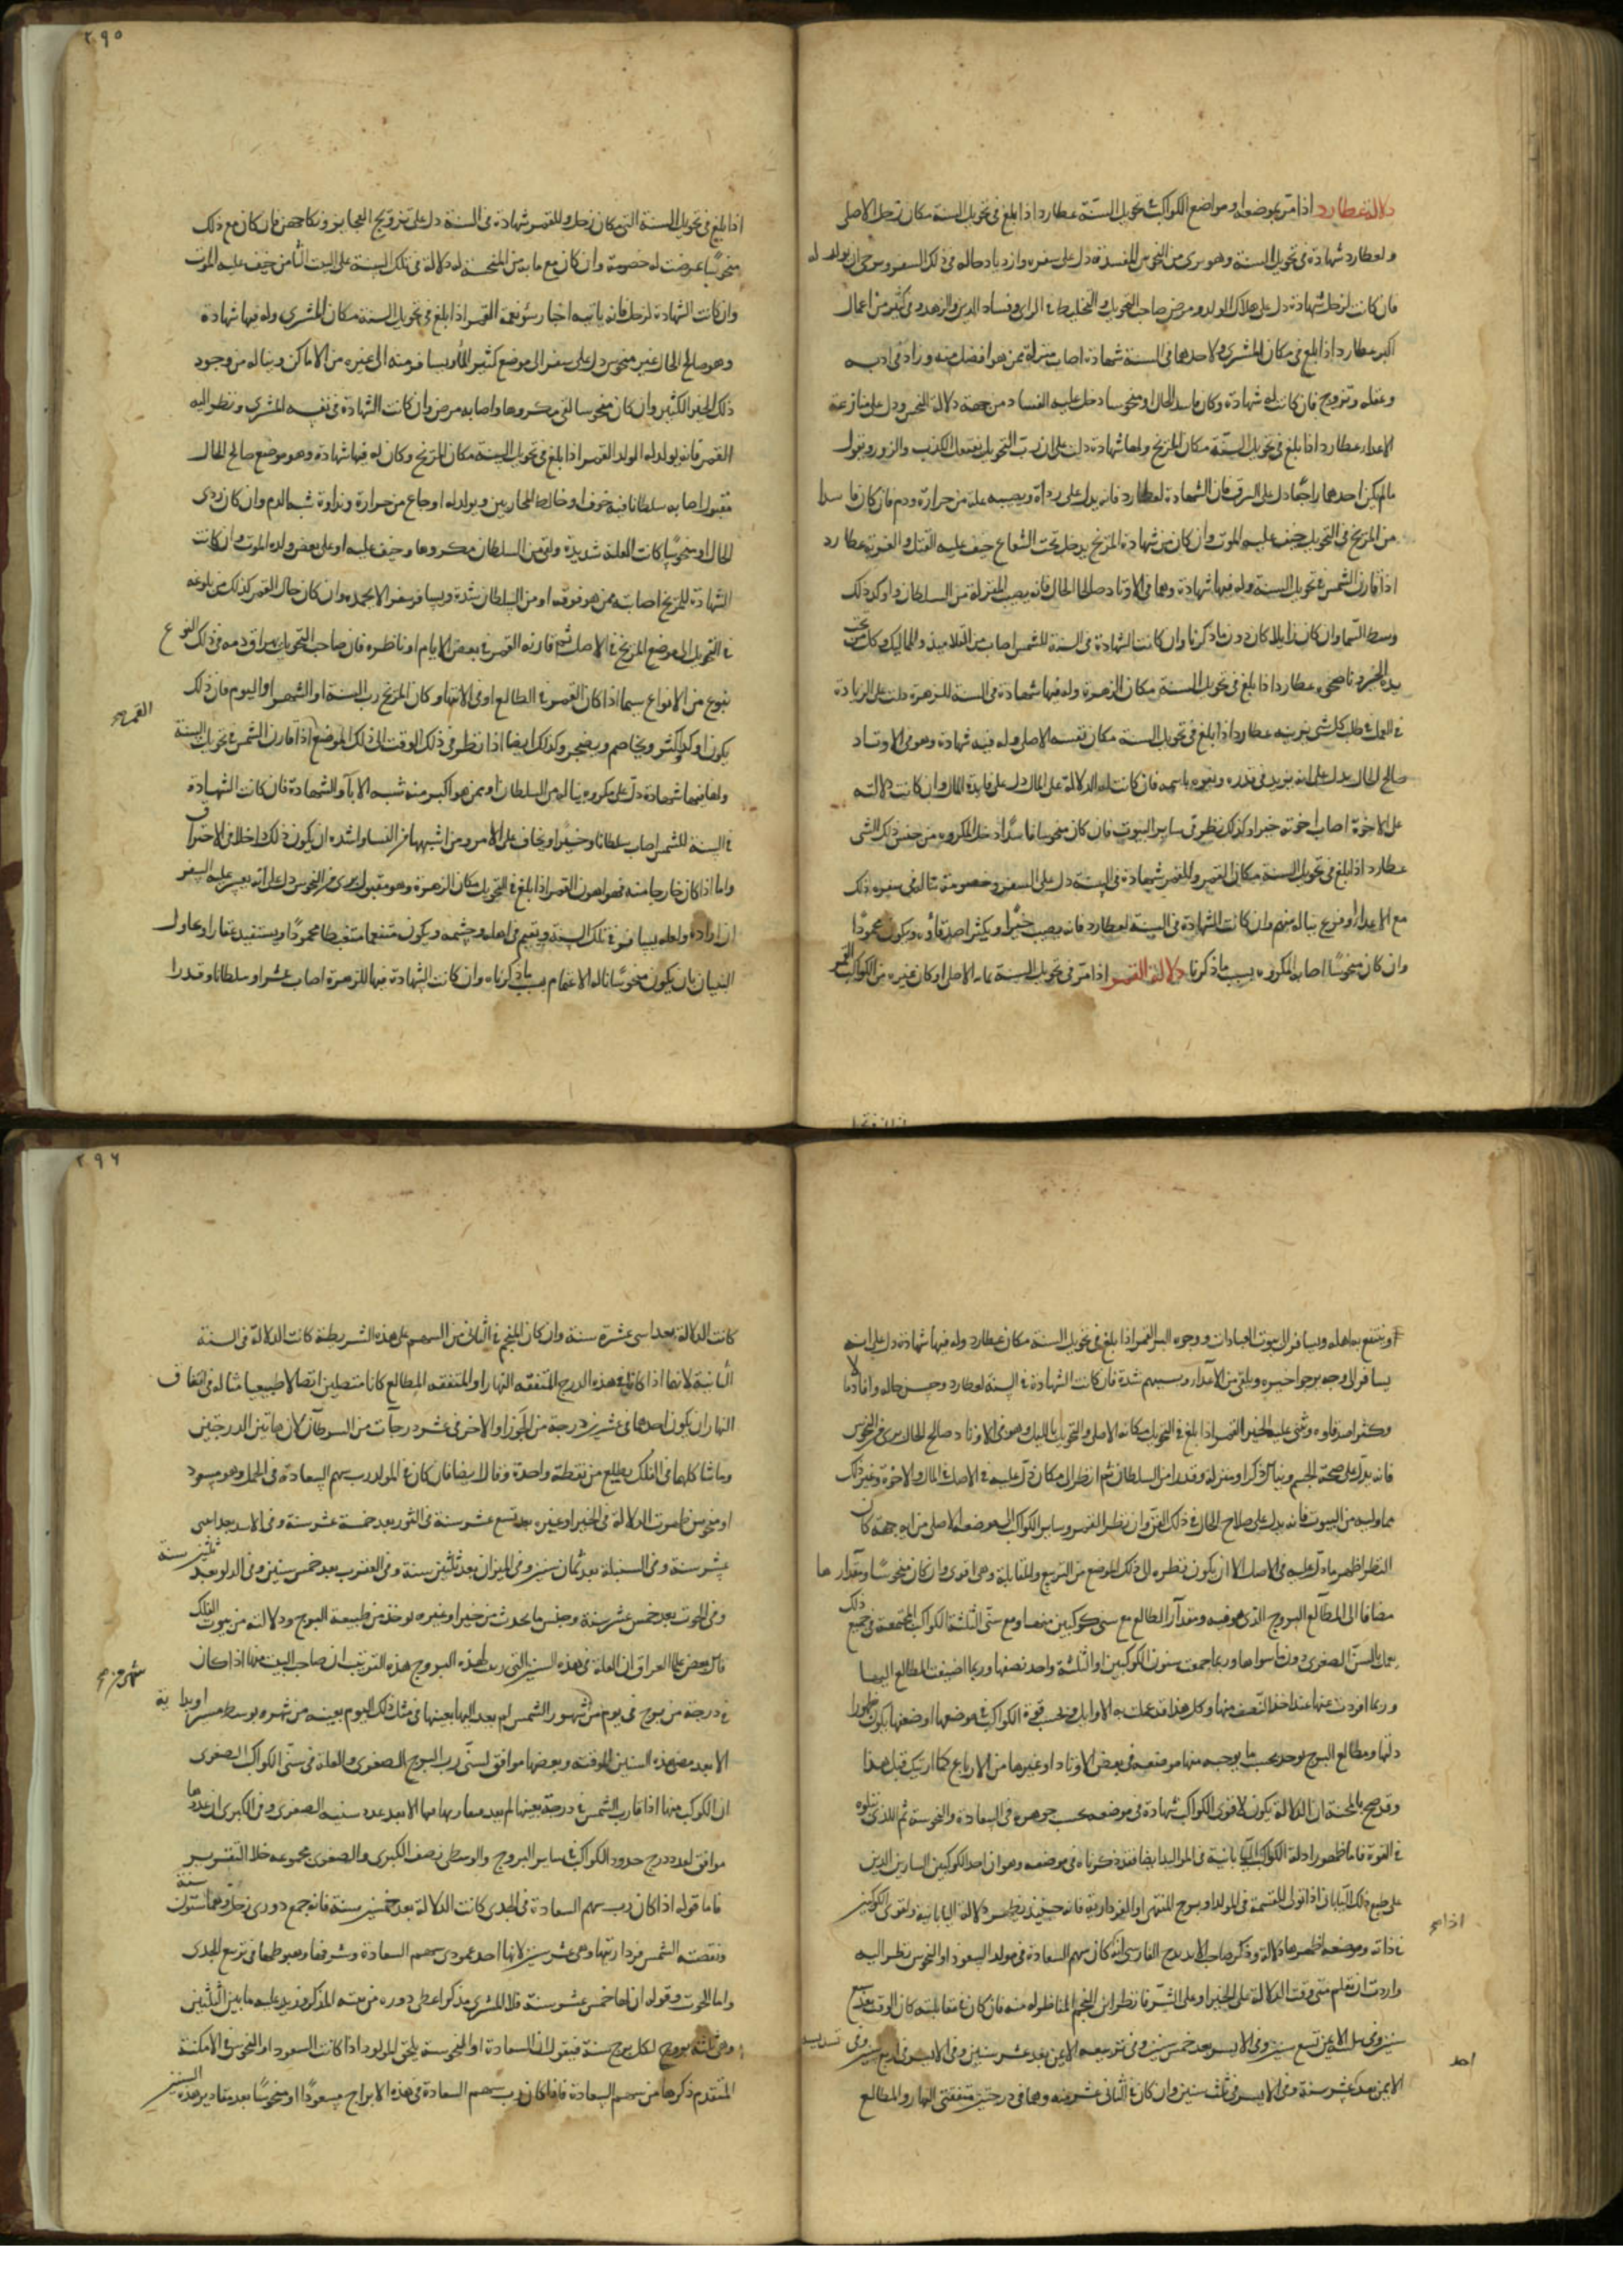 دلالة عطارد اذا مر بموضعه او مواضع الكواكب فى تحويل السنة عطارد اذا بلغ فى تحويل السنة مكان زحل الاصلى
ولعطارد شهادة فى تحويل السنة وهو برى من النحوس المفسدة دل على سفره وازدياد حاله فى ذلك السفر وسرحى ان يولد له
فان كانت لزحل شهادة دل على هلاك الولد ومرض صاحب التحويل والتخليط فى الراى وفساد الدين والزهد فى كثير من اعمال
اكبر عطارد اذا بلغ فى مكان المشترى ولاحدهما فى السنة شهادة اصاب منزلة ممن هو افضل منه وزاد فى ادبه
وعقله وتزويج فان كانت له شهادة وكان فاسد الحال او منحوسا دخل عليه الفساد من جهة دلالة النحس ودل على منازعة
الاعداء عطارد اذا بلغ فى تحويل السنة مكان المريخ ولها شهادة دلت على ان رب التحويل يفتعل الكذب والزور ويقول
مالم يكن احدهما راجعا دل على السرق فان الشهادة لعطارد فانه يدل على رداة ويصيبه علة من حرارة ودم فان كان فاسدا
من المريخ فى التحويل خيف عليه الموت وان كان من شهادة المريخ يدخل تحت الشعاع خيف عليه القتل والغربة عطارد
اذا قارن الشمس فى تحويل السنة وله فيها شهادة وهما فى الاوتاد صالحا الحال فانه يصيب المنزلة من السلطان واوكد ذلك
وسط السما وان كان زايلا كان دون ما ذكرنا وان كانت الشهادة فى السنة للشمس اصاب من التلاميذ والمماليك وكل من تحت
يده الخير وناصحى عطارد اذا بلغ فى تحويل السنة مكان الزهرة وله فيها شهادة فى السنة للزهرة دلت على الزيادة
فى العمل فى طلب كل شى يزينه عطارد اذا بلغ فى تحويل السنة مكان نفسه الاصلى وله فيه شهادة وهو فى الاوتاد
صالح الحال يدل على انه يزيد فى قدره وينوه باسمه فان كانت له الدلالة على المال دل على فايدة المال وان كانت دلالته
على الاخوة اصاب اخوته خيرا وكذلك ينظر فى ساير البيوت فان كان منحوسا فاسدا دخل المكروه من جنس ذلك الشى
عطارد اذا بلغ فى تحويل السنة مكان القمر وللقمر شهادة فى السنة دل على السفر وخصومة تناله فى سفره ذلك
مع الاعداء وفزع يناله منهم وان كانت الشهادة فى السنة لعطارد فانه يصيب خيرا ويكثر اصدقاؤه ويكون محمودا
وان كان منحوسا اصابه المكروه بسبب ما ذكرنا دلالة القمر اذا مر فى تحويل السنة بمكانه الاصلى او كان غيره من الكواكب القمر
٢٩٥
اذا بلغ فى تحويل السنة الى مكان زحل وللقمر شهادة فى السنة دل على تزويج العجايز ونكاحهن فان كان مع ذلك
منحوسا عرضت له خصومة وان كان مع ما به من المنحسة له دلالة فى تلك السنة على البيت الثامن خيف عليه الموت
وان كانت الشهادة لزحل فانه ياتيه اخبار سوء نعمة القمر اذا بلغ فى تحويل السنة مكان المشترى وله فيها شهادة
وهو صالح الحال غير منحوس دل على سفر الى موضع كثير الماء ويسافر منه الى غيره من الاماكن ويناله من وجوه
ذلك الخير الكثير وان كان منحوسا لقى مكروها واصابه مرض وان كانت الشهادة فى نفسه للمشترى ونظر اليه
القمر فانه يولد له الولد القمر اذا بلغ فى تحويل السنة مكان المريخ وكان له فيها شهادة وهو موضع صالح الحال
مقبول اصابه سلطانا فيه خوف او خالط المحاربين ويولد له اوجاع من حرارة ونداوة شبه الدم وان كان ردى
الحال او منحوسا كانت العلة شديدة ولقى من السلطان مكروها وخيف عليه او على بعض ولده الموت وان كانت
الشهادة للمريخ اصابته ممن هو فوقه او من السلطان شدة ويسافر سفرا لا يحمده وان كان حال القمر كذلك من بلوغه
فى التحويل الى موضع المريخ فى الاصل ثم قارنه القمر فى بعض الايام او ناظره فان صاحب التحويل يهراق دمه فى ذلك النوع
بنوع من الانواع سيما اذا كان القمر فى الطالع او فى الانتهاء وكان المريخ رب السنة او الشهر او اليوم فان ذلك
يكون اوكد واكثر ويخاصم ويضجر وكذلك ايضا اذا نظر فى ذلك الوقت الى ذلك الموضع اذا قارن الشمس فى تحويل السنة
القمر صح
ولها فيها شهادة دل على مكروه يناله من السلطان او ممن هو اكبر منه شبه الاباء والشهادة فان كانت الشهادة
فى السنة للشمس اصاب سلطانا وخيرا ويخاف على الامر ومن اشبهها من النساء واشده ان يكون ذلك داخلا فى الاحتراق
واما اذا كان خارجا منه فهو اهون القمر اذا بلغ فى التحويل مكان الزهرة وهو مقبول برى من النحوس دل على انه يعسر عليه السفر
ان اراده ولعله يسافر فى تلك السنة ويقيم فى اهله وحشمه ويكون متنعما مغتبطا محمودا ويستفيد عقارا وعاول
البنيان بان يكون منحوسا ناله الاغتمام بسبب ما ذكرناه وان كانت الشهادة فيها للزهرة اصاب عشرا وسلطانا وقدرا
او ينتفع به اهله ويسافر الى بيوت العبادات ووجوه البر القمر اذا بلغ فى تحويل السنة مكان عطارد وله فيها شهادة دل على انه
يسافر الى وجه يرجوا خيره ويلقى من الاعداء وسببهم شدة فان كانت الشهادة فى السنة لعطارد وحسن حاله وافاد مالا
وكثر اصدقاوه وثنى عليه الخير القمر اذا بلغ فى التحويل مكانه الاصلى والتحويل بالليل وهو فى الاوتاد صالح الحال برى من النحوس
فانه يدل على صحة الجسم وينال ذكرا ومنزلة وقدرا من السلطان ثم انظر الى مكان دل عليه فى الاصل فى المال والاخوة وغير ذلك
مما وليه من البيوت فانه يدل على صلاح الحال فى ذلك الفن وان نظر القمر وساير الكواكب الى موضعه الاصلى من اى جهة كان
النظر اظهر ما دل عليه فى الاصل الا ان يكون نظره الى ذلك الموضع من التربيع والمقابلة وهى اقوى وان كان منحوسا ومقدارها
مضافا الى المطالع البروج الذى هو فيه ومقدار الطالع مع سنى كوكبين منهما ومع سنى الثلثة الكواكب المجتمعة فى جميع ذلك
يعمل بالسن الصغرى دون ما سواها وربما جمعت سنون الكوكبين او الثلثة واحد نصفها وربما اضيفت المطالع اليها
وربما افردت عنها عند اخذ النصف منها وكل هذا قد عملت به الاوايل فبحسب قوة الكواكب فى موضعها او ضعفها يكون ظهور
دلتها ومطالع البرج يوخذ بحسب ما يوجبه منها موضعه فى بعض الاوتاد او غيرها من الارباع كما اريتك قبل هذا
وقد صح بالمحنة ان الدلالة يكون لاقوى الكواكب شهادة فى موضعه بحسب جوهره فى السعادة والنحوسة ثم الذى يتلوه
فى القوة فاما ظهور ادلة الكواكب البيابانية فى المواليد ايضا فقد ذكرناه فى موضعه وهو ان احد الكوكبين السارين الذين
على طبع ذلك البيابان اذا تولى القسمة فى المولد او برج المنتهى او الفردارية فانه حينئذ يظهر دلالة البيابانية ولقوى الكوكبين
اذا صح
فى ذاته وموضعه اظهرها دلالة وذكر صاحب الابدج الفارسى انه كان سهم السعادة فى مولد السعود او النحوس نظر اليه
واردت ان تعلم متى وقت الدلالة على الخير او على الشر فانظر اين النجم المناظر له منه فان كان فى مقابلته كان الوقت بعد سبع
سنين وفى تثليثه الايمن تسع سنين وفى الايسر بعد خمس سنين وفى تربيعه الايمن بعد عشر سنين وفى الايسر فى اربع سنين وفى تسديسه
احد
الايمن بعد عشر سنة وفى الايسر فى ثلث سنين وان كان فى الثانى عشر منه وهما فى درجتين متفقتى النهار والمطالع
٢٩٦
كانت الدلالة بعد اثنى عشرة سنة وان كان النجم فى الثانى من السهم على هذه الشريطة كانت الدلالة فى السنة
الثانية لانها اذا كانا فى هذه الدرج المتفقة النهار او المتفقة المطالع كانا متصلين اتصالا طبيعيا مثاله فى اتفاق
النهار ان يكون احدهما فى عشرين درجة من الجوزا والاخر فى عشر درجات من السرطان لان هاتين الدرجتين
وما شاكلهما فى الفلك يطلع من نقطة واحدة وقال ايضا فان كان فى المولد رب سهم السعادة فى الحمل وهو مسعود
او منحوس ظهرت الدلالة فى الخير او غيره بعد تسع عشر سنة فى الثور بعد خمسة عشر سنة وفى الاسد بعد اثنى
عشر سنة وفى السنبلة بعد ثمان سنين وفى الميزان بعد ثلثين سنة وفى العقرب بعد خمس سنين وفى الدلو بعد ثلثين سنة
وفى الحوت بعد خمس عشر سنة وجنس ما يحدث من خير او غيره يوخذ من طبيعة البرج ودلالته من بيوت الفلك
قال بعض علماء العراق ان العلة فى هذه السنين التى ربت لهذه البروج هذه الترتيب ان صاحب البيت منها اذا كان
فى درجة من برج فى يوم من شهور الشمس لم يعد اليها بعينها فى مثل ذلك اليوم بعينه من شهره بوسط مسير او بداية
شهر من صح
الا بعد مضى هذه السنين الموقتة وبعضها موافق لسنى رب البرج الصغرى والعلة فى سنى الكواكب الصغرى
ان الكوكب منها اذا قارب الشمس فى درجة بعينها لم يعد مقاربها فيها الا بعد عدد سنيه الصغرى وفى الكبرى ان عددها
موافق لعدد درج حدود الكواكب فى ساير البروج والوسطى نصف الكبرى والصغرى مجموعه خلا النيرين
فاما قوله اذا كان رب سهم السعادة فى الجدى كانت الدلالة بعد خمسين سنة فانه جمع دورى زحل وهما ستون سنة
ونقصته الشمس فرداريتها وهى عشر سنين لانها احد عمودى سهم السعادة وشرفها وهبوطها فى تربيع الجدى
واما الحوت وقوله ان لها خمس عشر سنة فلا المشترى مذكر اعطى دوره من بيته المذكر فيزيد عليه ما بين الثلثين
وهى ثلثة بروج لكل برج سنة فيقول ان السعادة او النحوسة يلحق المولود اذا كانت السعود او النحوس فى الامكنة
المتقدم ذكرها من سهم السعادة فاما كان رب سهم السعادة فى هذه الابراج مسعودا او منحوسا بعد مقادير هذه السنين